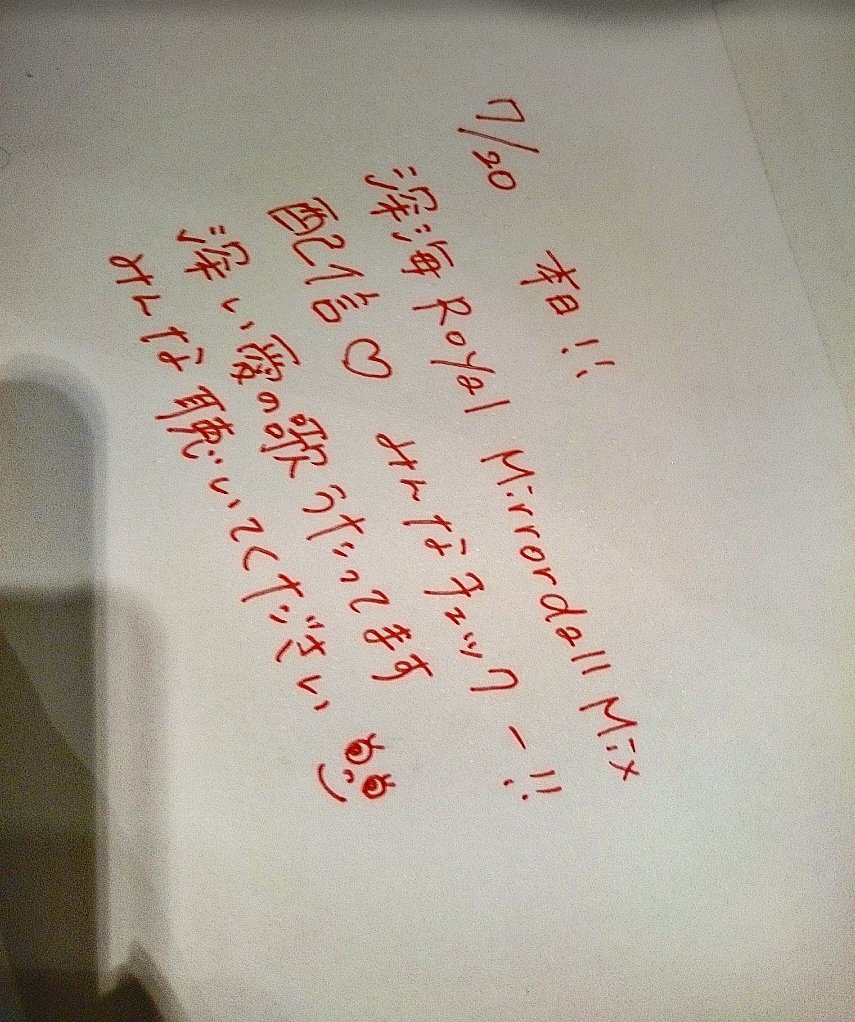 7/20 本日!!
深海 Royal Mirrorball Mix
配信♡ みんなチェックー!!
深い愛の歌うたってます
みんな聴いてください